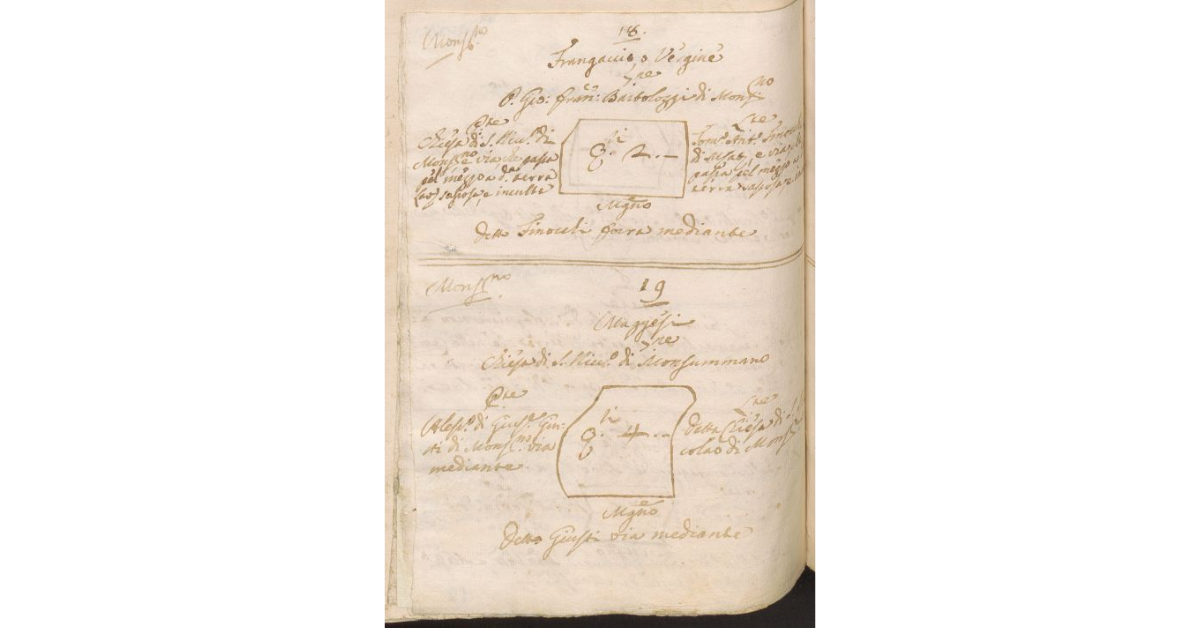 Mons.no
18.
Frangaccio, o Vergine
P. Gio: Fran:co Bartolozzi di Mons.no
Chiesa di S. Nic.o di
Mons.no e via che passa
pel mezzo a d.a terra
sassosa, e inculta
8.i 2. —
Tom.o Ant.o Finocchi
di e via
passa pel mezzo
terra sassosa
Mgno
detto Finochi forra mediante
Mons.no
19
Maggesi
Chiesa di S. Nic.o di Monsummano
P.te
Aless.o di Gius.e Giu-
sti di Mons.no via
mediante
8.i 4. --
Detta Chiesa di S.
colao di Mons
Mgno
Detto Giusti via mediante